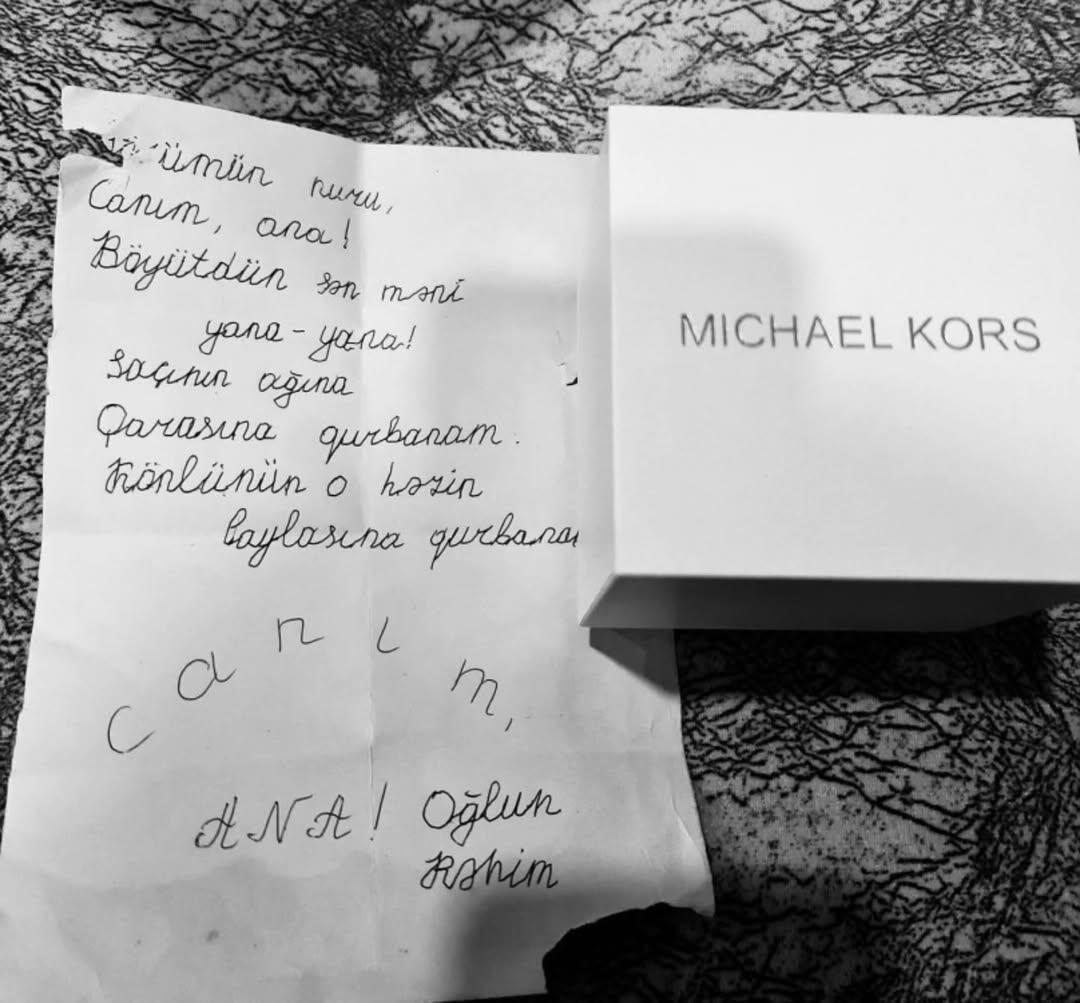 nuru,
Canım, ana!
Böyütdün sən məni
yana-yana!
Saçının ağına
Qarasına qurbanam.
Könlünün o həzin
laylasına
Canım,
ANA! Oğlun
Rəhim
MICHAEL KORS